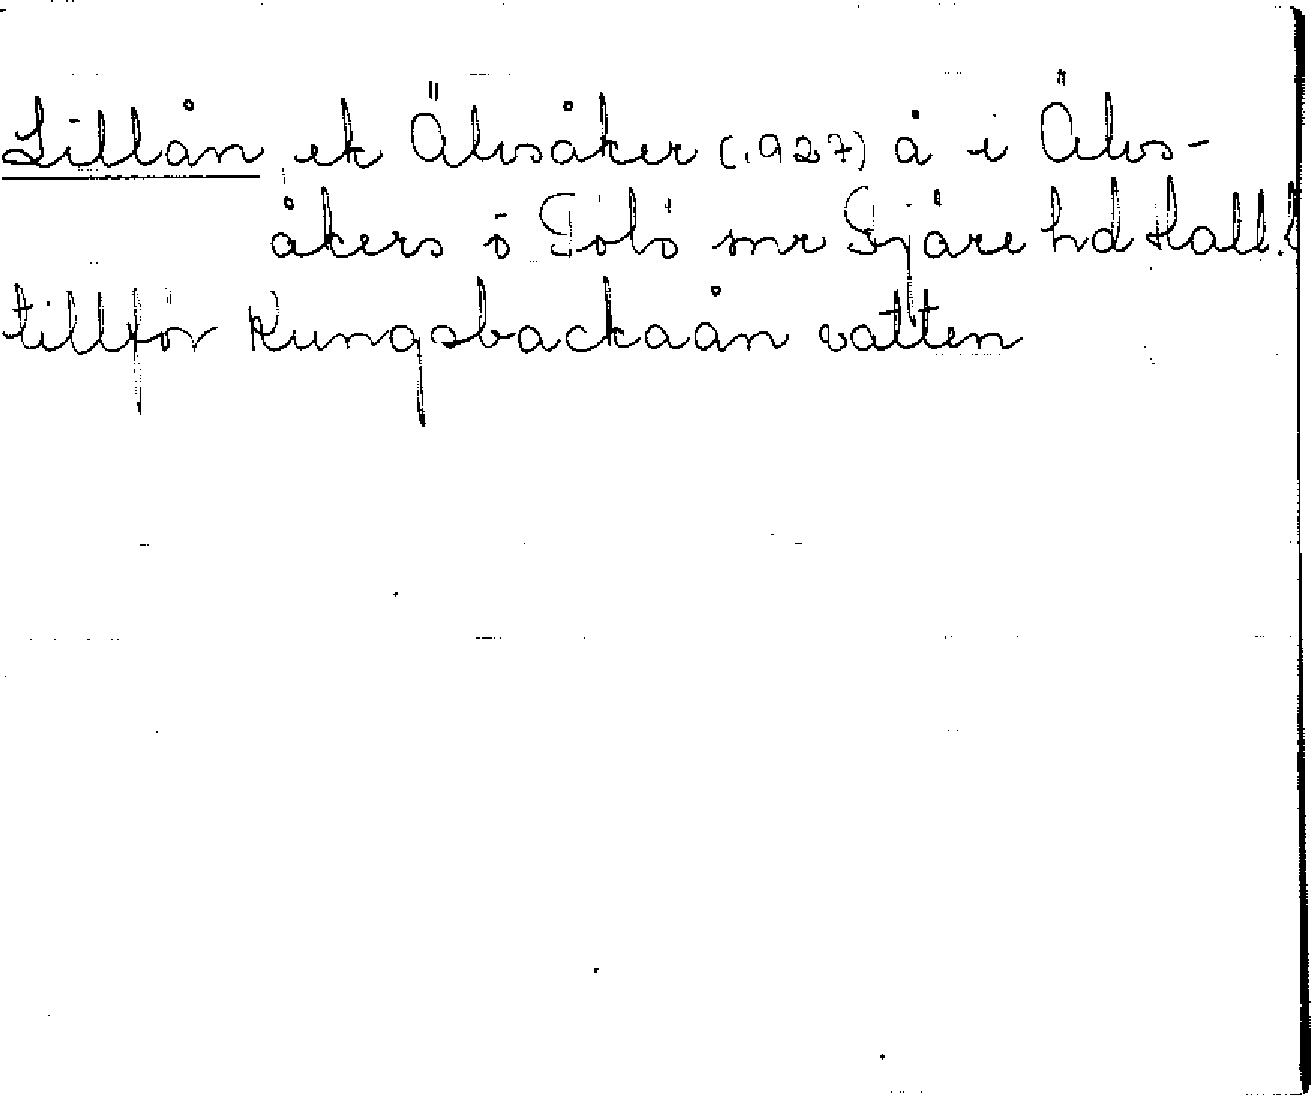 Lillån ek Älvsåker (1927) å i Älvs-
åkers o Tölö snr Fjäre hd Hall.
tillför Kungsbackaån vatten